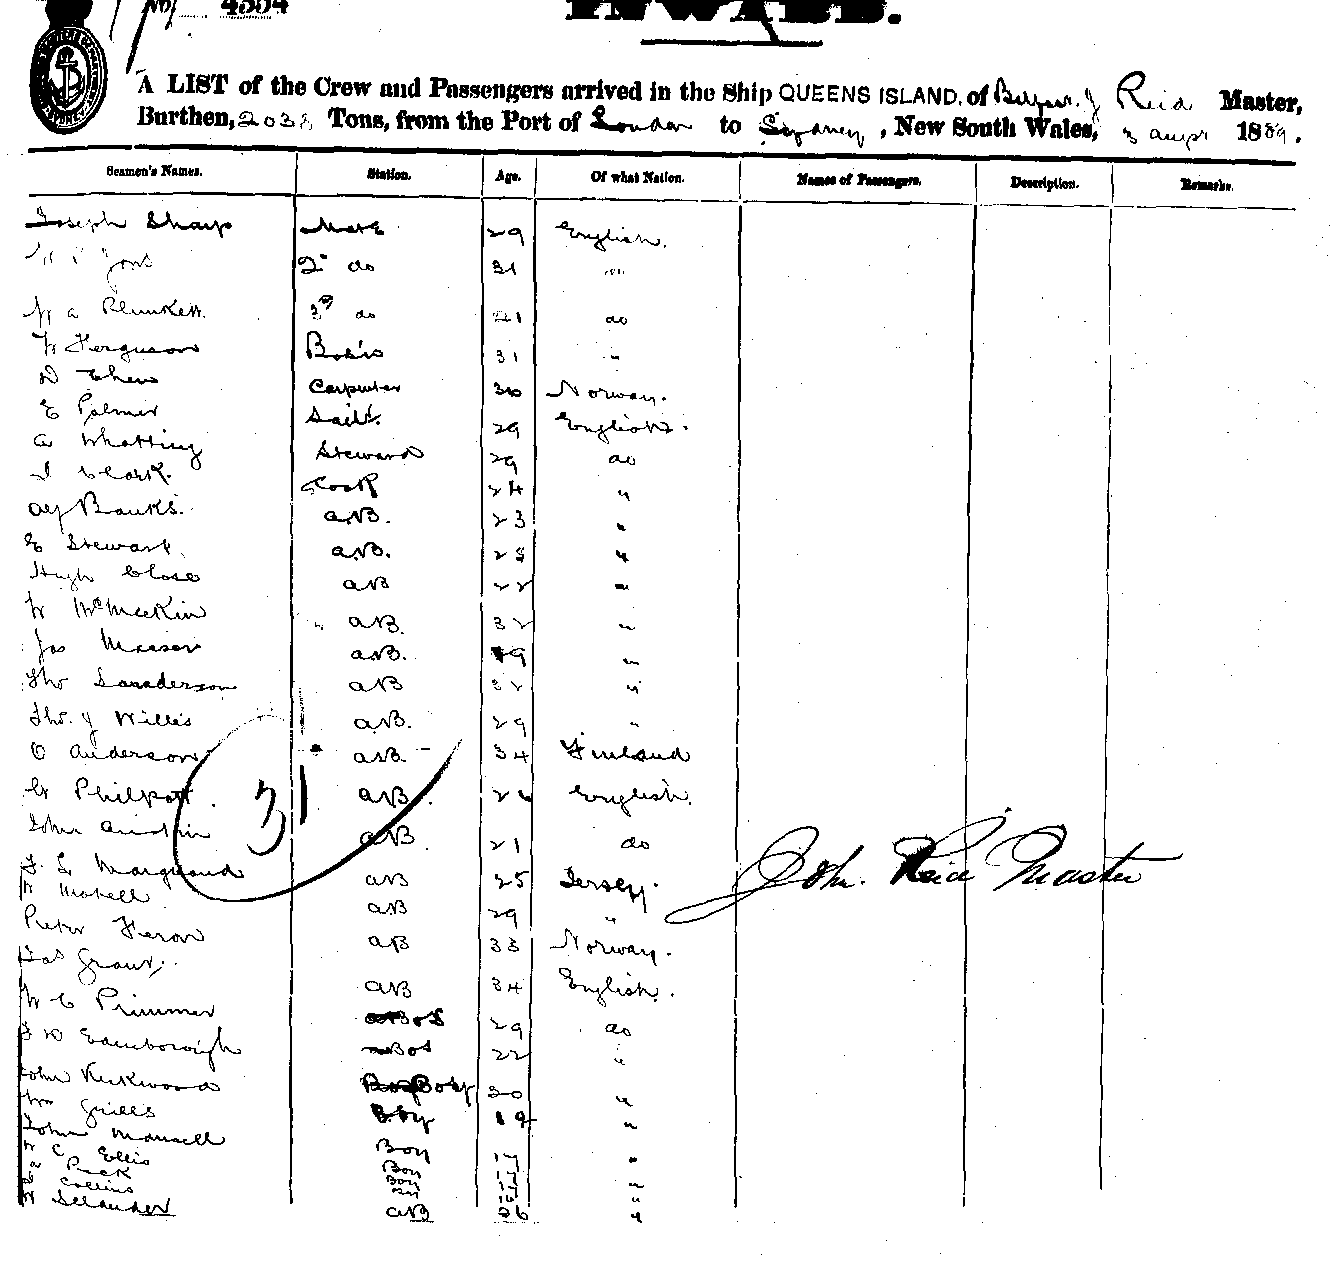 No. 4554
INWARD.
A LIST of the Crew and Passengers arrived in the Ship QUEENS ISLAND, of Belfast. J Reid Master,
Burthen, 2038 Tons, from the Port of London to Sydney, New South Wales, 3 1889.
Seamen's Names. Station. Age. Of what Nation. Names of Passengers. Description. Remarks.
Joseph Sharp Mate 29 English.
2d do 31 "
W A Plunkett. 3d do 21 do
W Ferguson Bos'n 31 "
Carpenter 30 Norway.
E Palmer Sailr. 29 English.
A Whatting Steward 29 do
Clark. Cook 24 "
Alf Banks. A.B. 23 "
E Stewart. A.B. 25 "
Hugh Close AB 22 "
W McMeekin AB. 32 "
Jas AB. 29 "
Tho Saunderson AB 32 "
Tho. J Willis AB. 29 "
O Anderson AB 34 Finland
31
Philpott. AB. English.
John Austin AB 21 do
Marquand AB 25 Jersey.
AB 29 "
John Reid Master
Peter Feron AB 33 Norway.
Jas Grant. AB 34 English.
W C Primmer OS 29 do
OS 22 "
John Kirkwood Boy 20 "
Wm Grills Boy 19 "
John Mansell Boy "
W C Ellis Boy
Peck Boy "
Collins "
AB 26 "